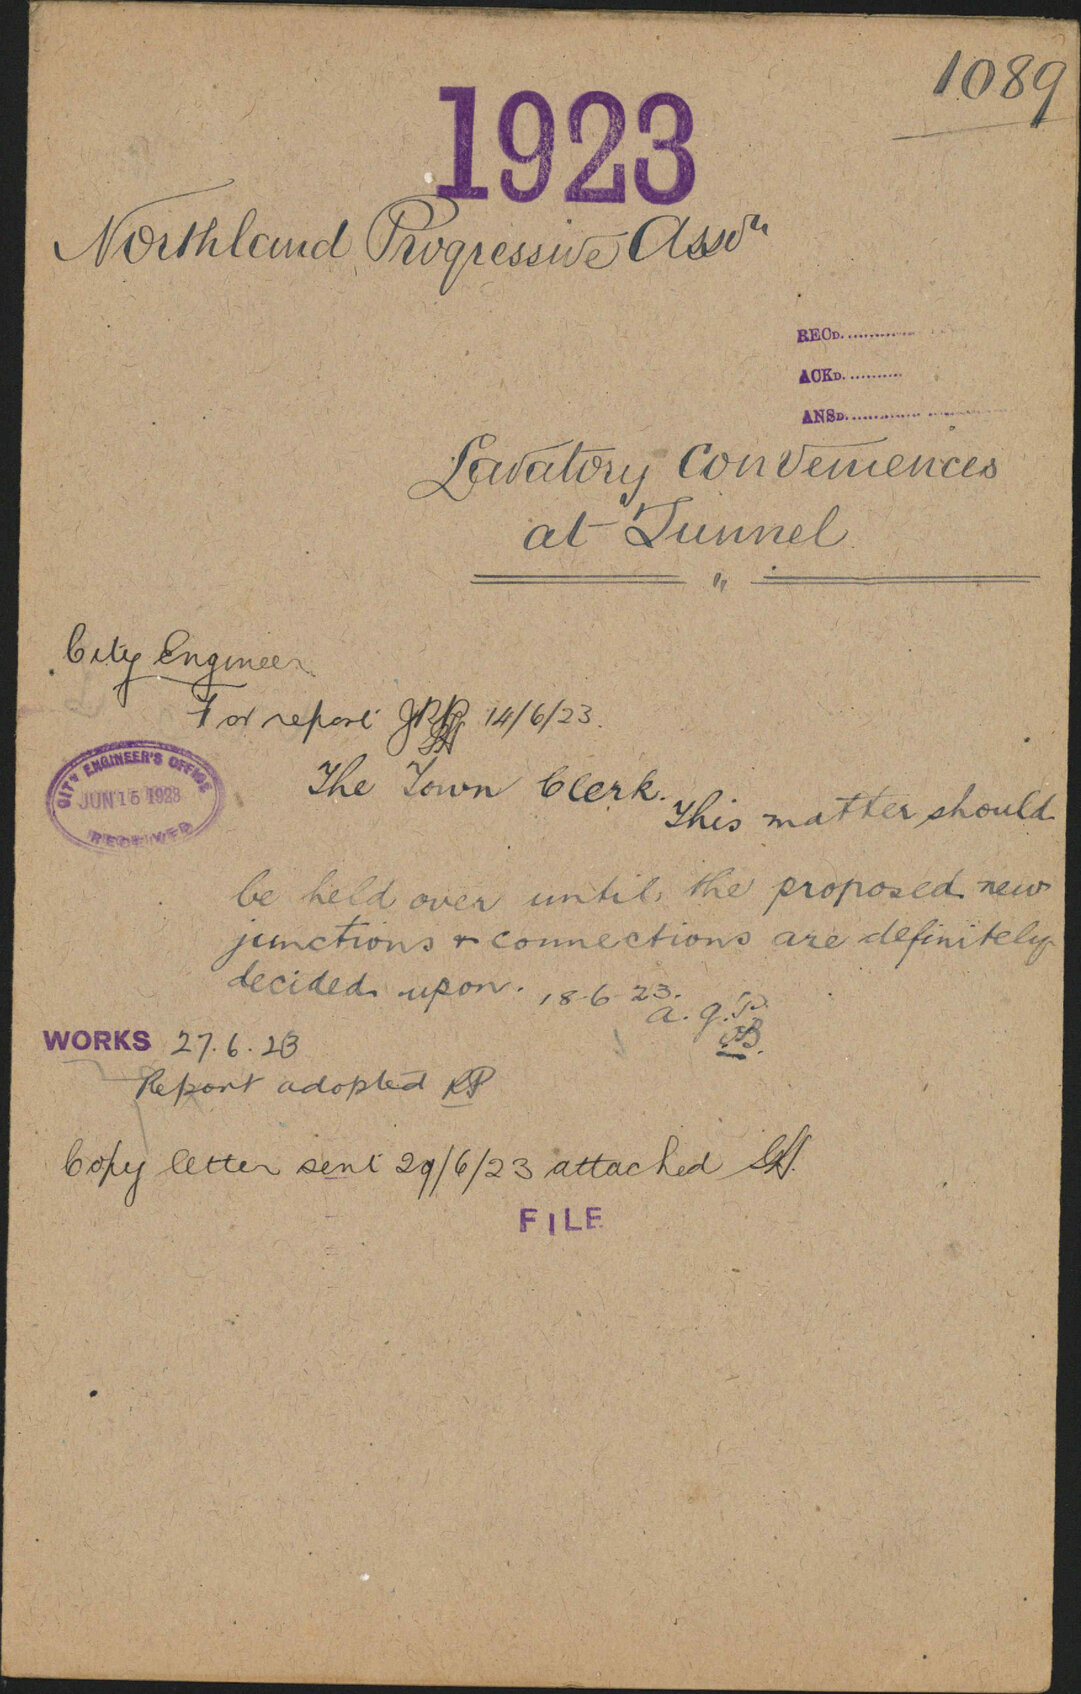 1089
1923
Northland Progressive Assocn
RECD.
ACKD.
ANSD.
Lavatory Conveniences
at Tunnel
"
City Engineer
For report 14/6/23.
CITY ENGINEER'S OFFICE
JUN 15 1923
RECEIVED
The Town Clerk.
This matter should
be held over until the proposed new
junctions & connections are definitely
decided upon. 18-6-23.
a. g. P.
WORKS 27.6.23
Report adopted
Copy letter sent 29/6/23 attached
FILE